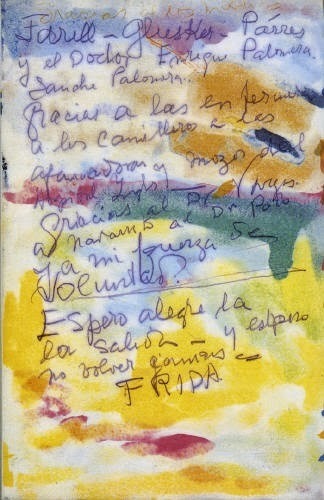 Farill – Glusker – Párres
y el Doctor Enrique Palomera
Sanche Palomera.
Gracias a las enfermeras
a los camilleros a las
afanadoras y mozos del
Gracias al Dr
a Navarro al Dr Polo
y a mi fuerza de
voluntad.
Espero alegre la
la salida – y espero
no volver jamás –
FRIDA